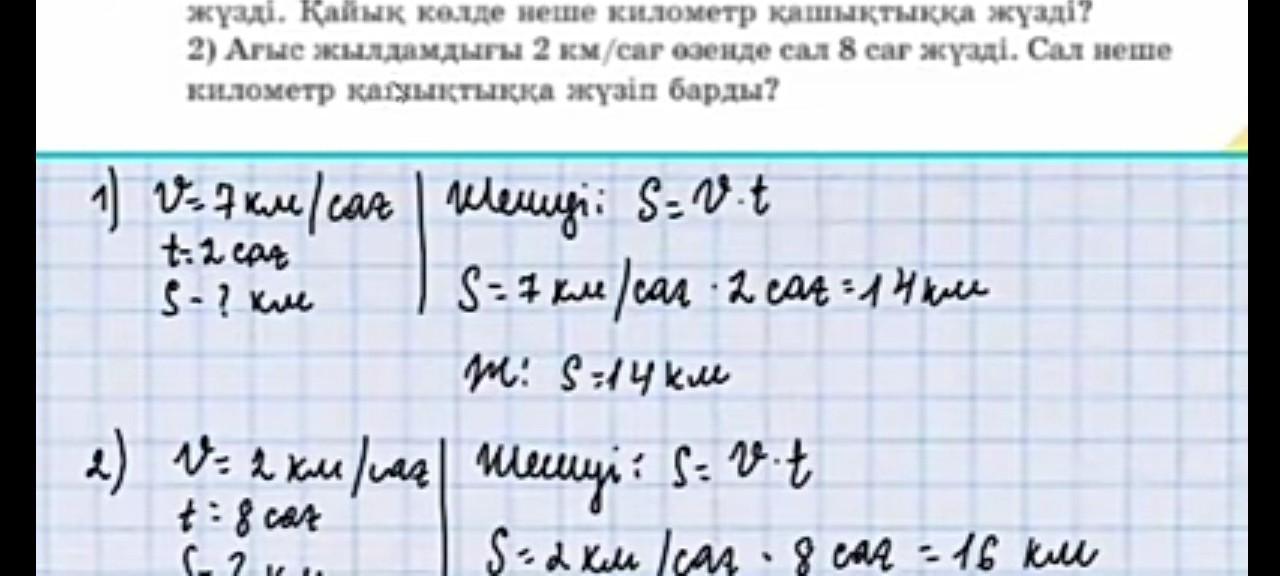 жүзді. Қайық көлде неше километр қашықтыққа жүзді?
2) Ағыс жылдамдығы 2 км/сағ өзенде сал 8 сағ жүзді. Сал неше
километр қашықтыққа жүзіп барды?
1) V=7 км/сағ | Шешуі: S=V·t
t=2 сағ
S-? км
S=7 км/сағ · 2 сағ=14 км
Ж: S=14 км
2) V=2 км/сағ | Шешуі: S=V·t
t=8 сағ
S-? км
S=2 км/сағ · 8 сағ = 16 км